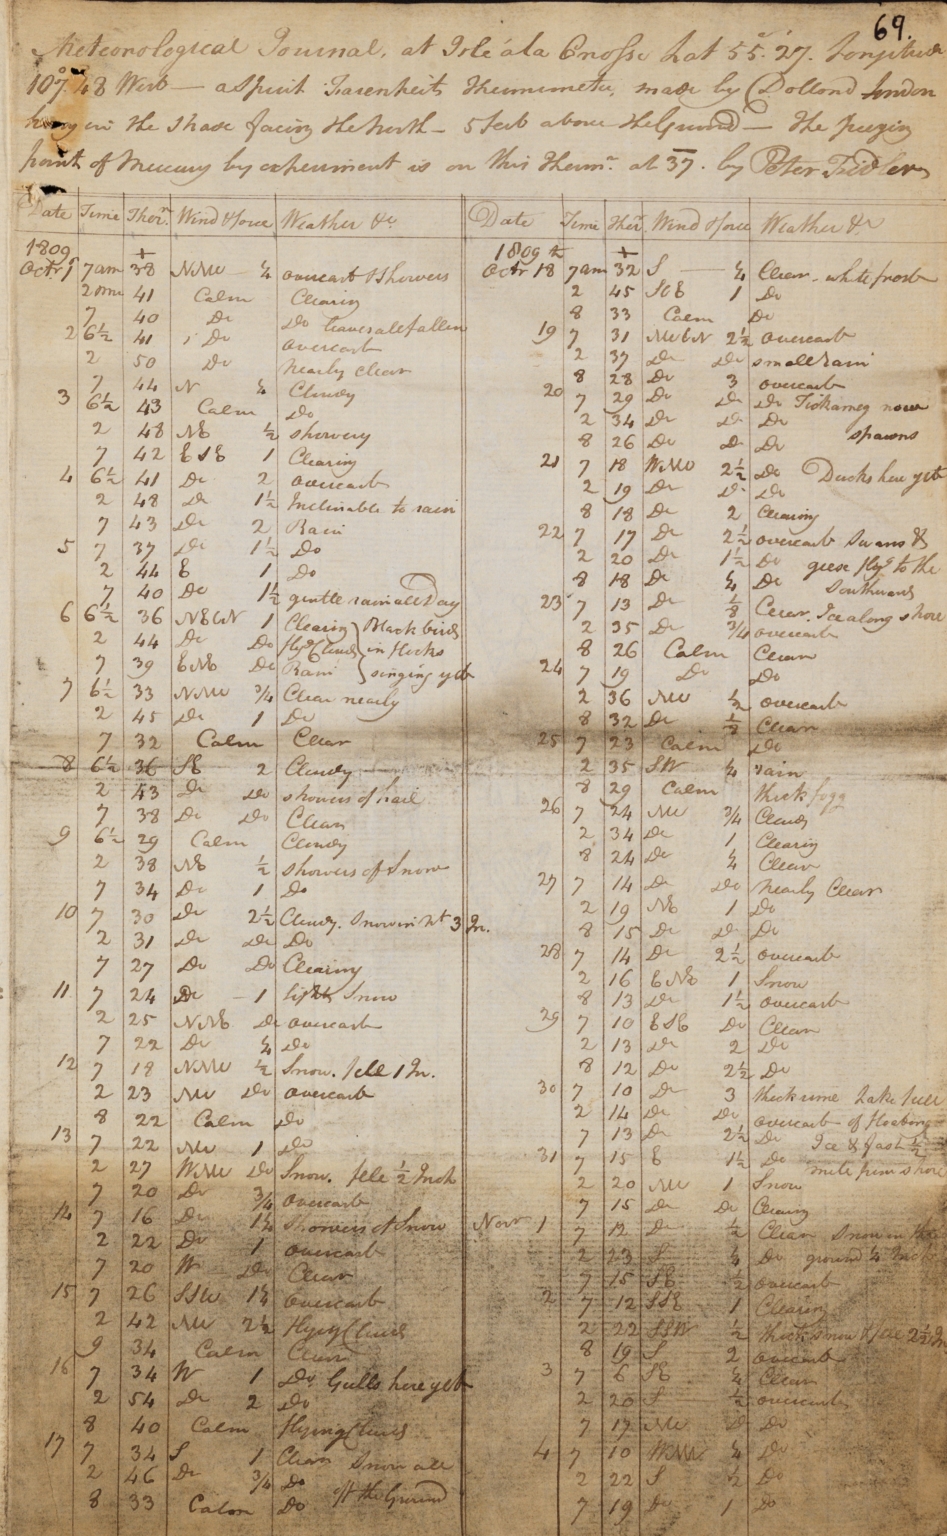 69.
Meteorological Journal, at Isle á la Crosse Lat 55.27. Longitude
107°.48 West — a Spirit Farenheits Thermometer, made by Dollond London
hung in the Shade facing the North — 5 feet above the Ground — The freezing
point of Mercury by experiment is on this Therm.r at 37. by Peter Fidler
Date Time Ther.r Wind & force Weather &c
1809 +
Octr 1 7 am 38 NNW — ¼ overcast & Showers
2 pm 41 Calm Clearing
7 40 Do Do leaves all fallen
2 6½ 41 Do overcast
2 50 Do nearly clear
7 44 N ¼ Cloudy
3 6½ 43 Calm Do
2 48 NE ½ showery
7 42 ESE 1 Clearing
4 6½ 41 Do 2 overcast
2 48 Do 1½ Inclinable to rain
7 43 Do 2 Rain
5 7 37 Do 1½ Do
2 44 E 1 Do
7 40 Do 1½ gentle rain all Day
6 6½ 36 NEbN 1 Clearing Black birds
2 44 Do Do flyg Clouds in flocks
7 39 ENE Do Rain singing yet
7 6½ 33 NNW ¾ Clear nearly
2 45 Do 1 Do
7 32 Calm Clear
8 6½ 36 SE 2 Cloudy
2 43 Do Do showers of hail
7 38 Do Do Clear
9 6½ 29 Calm Cloudy
2 38 NE ½ showers of Snow
7 34 Do 1 Do
10 7 30 Do 2½ Cloudy. Snow in nt 3 In.
2 31 Do Do Do
7 27 Do Do Clearing
11 7 24 Do — 1 light Snow
2 25 NNE Do overcast
7 22 Do ¼ Do
12 7 18 NNW ½ Snow. fell 1 In.
2 23 NW Do overcast
8 22 Calm Do
13 7 22 NW 1 Do
2 27 WNW Do Snow. fell ½ Inch
7 20 Do ¾ overcast
14 7 16 Do 1¼ showers of Snow
2 22 Do 1 overcast
7 20 W Do Clear
15 7 26 SSW 1¼ overcast
2 42 NW 2½ Flying Clouds
9 34 Calm Clear
16 7 34 W 1 Do Gulls here yet
2 54 Do 2 Do
8 40 Calm Flying Clouds
17 7 34 S 1 Clear Snow all
2 46 Do ¾ Do off the Ground
8 33 Calm Do
Date Time Ther Wind & force Weather &c
1809 +
Octr 18 7 am 32 S — ¼ Clear. white frost
2 45 SbE 1 Do
8 33 Calm Do
19 7 31 NWbN 2½ overcast
2 37 Do Do small rain
8 28 Do 3 overcast
20 7 29 Do Do Do Tickameg now
2 34 Do Do Do spawns
8 26 Do Do Do
21 7 18 WNW 2½ Do Ducks here yet
2 19 Do Do Do
8 18 Do 2 Clearing
22 7 17 Do 2½ overcast Swans &
2 20 Do 1½ Do geese flyg to the
8 18 Do ¼ Do Southward
23 7 13 Do ⅛ Clear. Ice along shore
2 35 Do ¾ overcast
8 26 Calm Clear
24 7 19 Do Do
2 36 NW ½ overcast
8 32 Do ½ Clear
25 7 23 Calm Do
2 35 SW ¼ rain
8 29 Calm thick fogg
26 7 24 NW ¾ Cloudy
2 34 Do 1 Clearing
8 24 Do ¼ Clear
27 7 14 Do Do nearly Clear
2 19 NE 1 Do
8 15 Do Do Do
28 7 14 Do 2½ overcast
2 16 ENE 1 Snow
8 13 Do 1½ overcast
29 7 10 ESE Do Clear
2 13 Do 2 Do
8 12 Do 2½ Do
30 7 10 Do 3 thick rime Lake full
2 14 Do Do overcast of floating
7 13 Do 2½ Do Ice & fast ½
31 7 15 E 1½ Do mile from shore
2 20 NW 1 Snow
7 15 Do Do Clearing
Novr 1 7 12 Do ½ Clear Snow in the
2 23 S ¼ Do ground ¼ Inch
7 15 SE ½ overcast
2 7 12 SSE 1 Clearing
2 22 SSW ½ thick snow & fell 2½ In
8 19 S 2 overcast
3 7 6 SE ¼ Clear
2 20 S ½ overcast
7 17 NW Do Do
4 7 10 WNW ¼ Do
2 22 S ½ Do
7 19 Do 1 Do